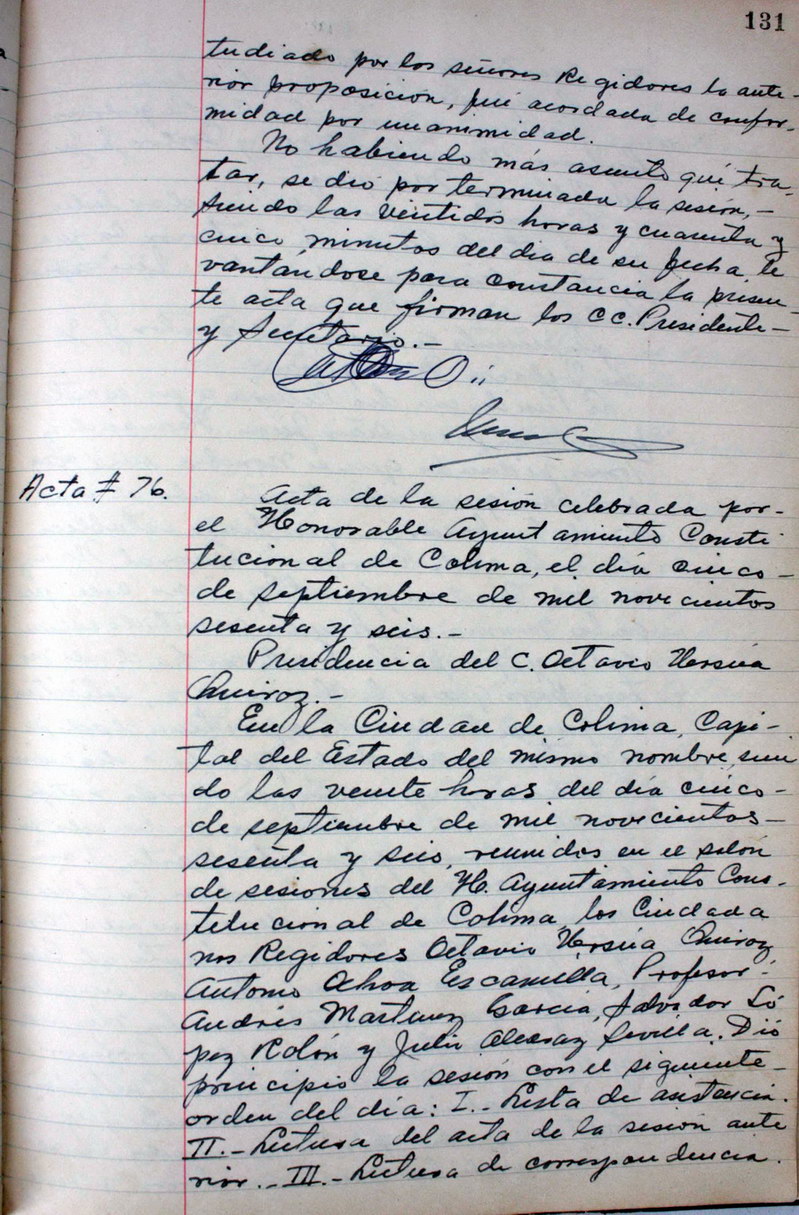 131
tudiado por los señores Regidores la ante-
rior proposición, fué acordada de confor-
midad por unanimidad.
No habiendo más asunto qué tra-
tar, se dió por terminada la sesión,-
siendo las veintidos horas y cuarenta y
cinco minutos del dia de su fecha, le
vantandose para constancia la presen-
te acta que firman los CC. Presidente-
y Secretario.-
Acta # 76.
Acta de la sesión celebrada por-
el Honorable Ayuntamiento Consti
tucional de Colima, el día cinco-
de septiembre de mil novecientos
sesenta y seis.-
Presidencia del C. Octavio Ursúa
Quiroz.-
En la Ciudad de Colima, Capi-
tal del Estado del mismo nombre, sien
do las veinte horas del día cinco-
de septiembre de mil novecientos-
sesenta y seis, reunidos en el salón
de sesiones del H. Ayuntamiento Cons-
titucional de Colima los Ciudada
nos Regidores Octavio Ursúa Quiroz
Antonio Ochoa Escamilla, Profesor-
Andrés Martínez García, Salvador Ló
pez Rolón y Julio Alcaraz Sevilla. Dió
principio la sesión con el siguiente-
orden del día: I.- Lista de asistencia.
II.- Lectura del acta de la sesión ante
rior.- III.- Lectura de correspondencia.